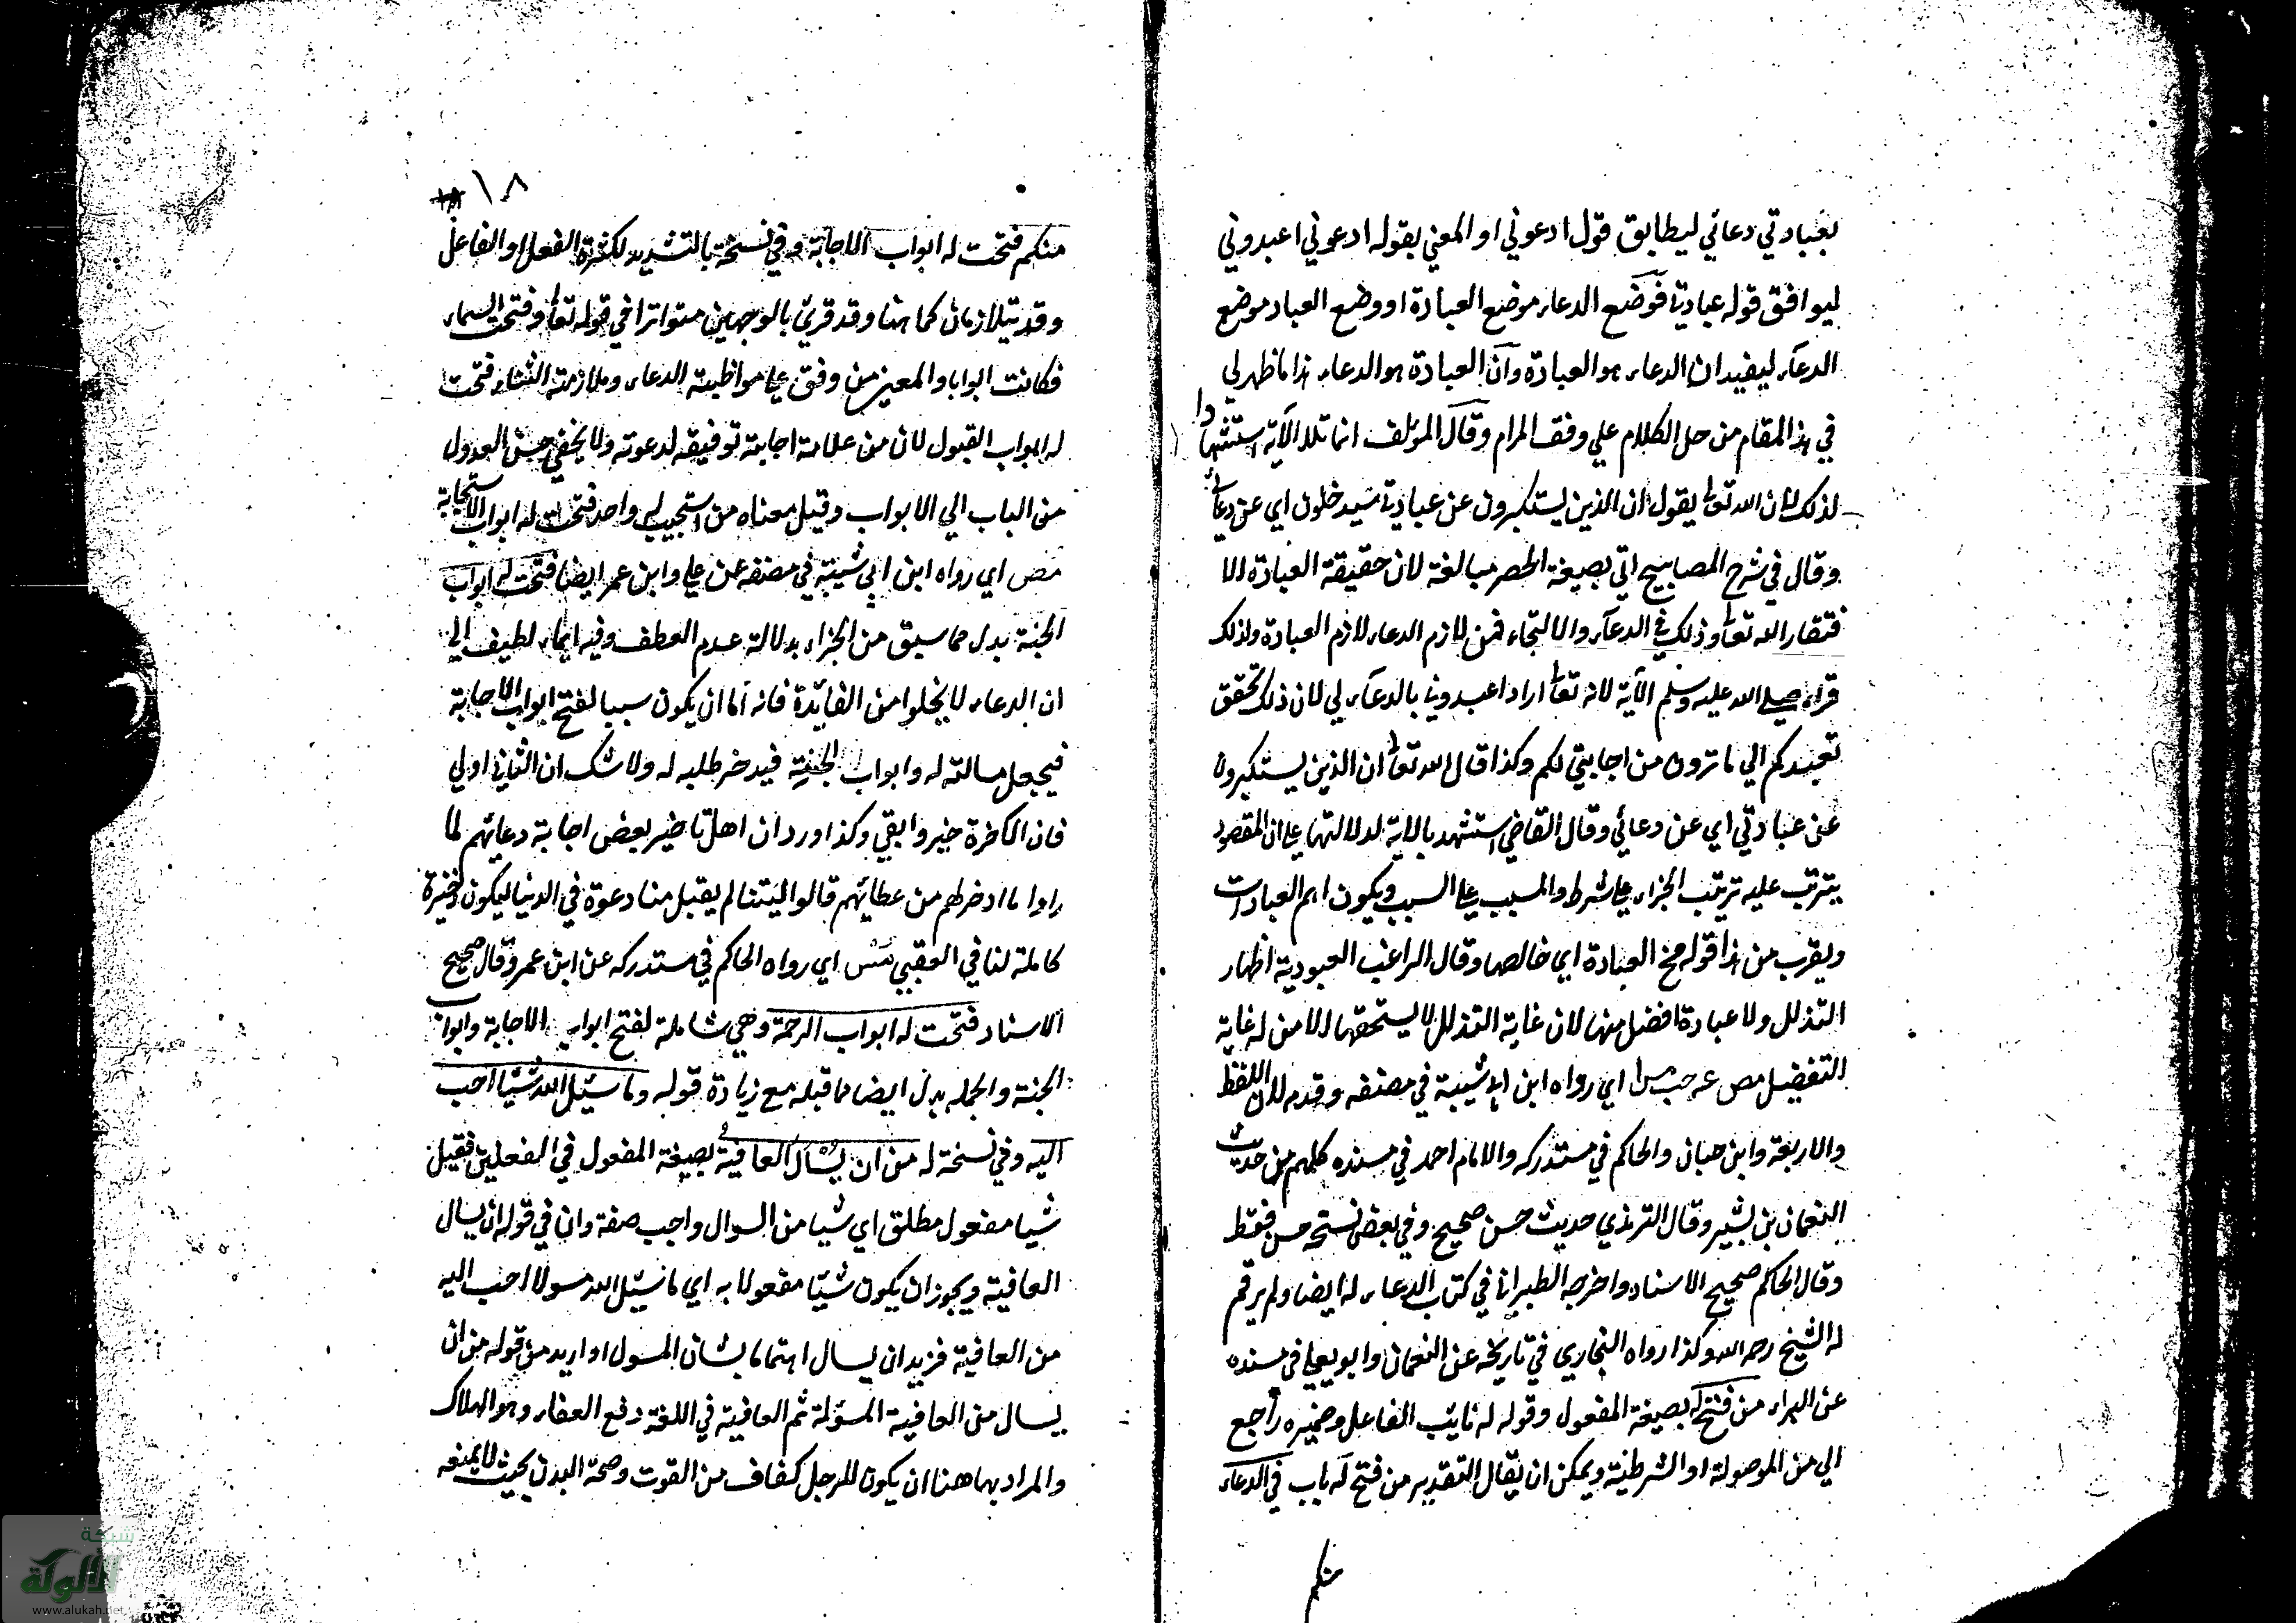 بعبادتي دعائي ليطابق قول ادعوني او المعني بقوله ادعوني اعبدوني
ليوافق قوله عبادتي فوضع الدعاء موضع العبادة او وضع العباد موضع
الدعاء ليفيد ان الدعاء هو العبادة وان العبادة هو الدعاء هذا ما ظهر لي
في هذا المقام من حل الكلام علي وفق المرام وقال المؤلف انما تلا الآية استشهادا
لذلك لان الله تعا يقول ان الذين يستكبرون عن عبادتي سيدخلون اي عن دعائي
وقال في شرح المصابيح اتي بصيغة الحصر مبالغة لان حقيقة العبادة الا
فتقار الله تعا وذلك في الدعاء والالتجاء فمن لازم الدعاء لازم العبادة ولذلك
قراء صلى الله عليه وسلم الآية لانه تعا اراد اعبدوني بالدعاء لي لان ذلك تحقق
تعبدكم الي ما ترون من اجابتي لكم وكذا قال الله تعا ان الذين يستكبرون
عن عبادتي اي عن دعائي وقال القاضي استشهد بالاية لدلالتها علي ان المقصود
يترتب عليه ترتب الجزاء علي الشرط والمسبب علي السبب ويكون اهم العبادات
ويقرب من هذا قوله مخ العبادة اي خالصها وقال الراغب العبودية اظهار
التذلل ولا عبادة افضل منها لان غاية التذلل لا يستحقها الا من له غاية
التفضيل مص عه حب مس ا اي رواه ابن ابي شيبة في مصنفه وقدم لان اللفظ
والاربعة وابن حبان والحاكم في مستدركه والامام احمد في مسنده كلهم من حديث
النعمان بن بشير وقال الترمذي حديث حسن صحيح وفي بعض نسخه حسن فقط
وقال الحاكم صحيح الاسناد واخرجه الطبراني في كتاب الدعاء له ايضا ولم يرقم
له الشيخ رحمه الله وكذا رواه البخاري في تاريخه عن النعمان وابو يعلي في مسنده
عن البراء من فتح له بصيغة المفعول وقوله له نائب الفاعل وضميره راجع
الي من الموصولة او الشرطية ويمكن ان يقال التقدير من فتح له باب في الدعاء
منكم
١٨
منكم فتحت له ابواب الاجابة وفي نسخة بالتشديد لكثرة الفعل او الفاعل
وقد يتلازمان كما هنا وقد قري بالوجهين متواترا في قوله تعا وفتحت السماء
فكانت ابوابا والمعني من وفق علي مواظبة الدعاء وملازمة الثناء فتحت
له ابواب القبول لان من علامة اجابته توفيقه لدعوته ولا يخفي حسن العدول
من الباب الي الابواب وقيل معناه من استجيب له واحد فتحت له ابواب الاستجابة
مص اي رواه ابن ابي شيبة في مصنفه عن علي وابن عمر ايضا فتحت له ابواب
الجنة بدل مما سبق من الجزاء بدلالة عدم العطف وفيه ايماء لطيف الي
ان الدعاء لا يخلوا من الفائدة فانه اما ان يكون سببا لفتح ابواب الاجابة
فيجعل مسالته له وابواب الجنة فيدخر طلبه له ولا شك ان الثاني اولي
فان الاخرة خير وابقي وكذا ورد ان اهل تاخير بعض اجابة دعائهم لما
راوا ما ادخر لهم من عطائهم قالوا ليتنا لم يقبل منا دعوة في الدنيا ليكون ذخيرة
كاملة لنا في العقبي مس اي رواه الحاكم في مستدركه عن ابن عمر وقال صحيح
الاسناد فتحت له ابواب الرحمة وهي شاملة لفتح ابواب الاجابة وابواب
الجنة والجملة بدل ايضا مما قبله مع زيادة قوله وما سئل الله شيئا احب
اليه وفي نسخة له من ان يسأل العافية بصيغة المفعول في الفعلين فقيل
شيا مفعول مطلق اي شيا من السوال واحب صفة وان في قوله ان يسال
العافية ويجوز ان يكون شيئا مفعولا به اي ما سئل الله مسولا احب اليه
من العافية فزيد ان يسال اهتماما بشان المسول او اريد من قوله من ان
يسال من العافية المسؤلة ثم العافية في اللغة دفع العفاء وهو الهلاك
والمراد بها هنا ان يكون للرجل كفاف من القوت وصحة البدن بحيث لا يمنعه
شبكة
الألوكة
www.alukah.net